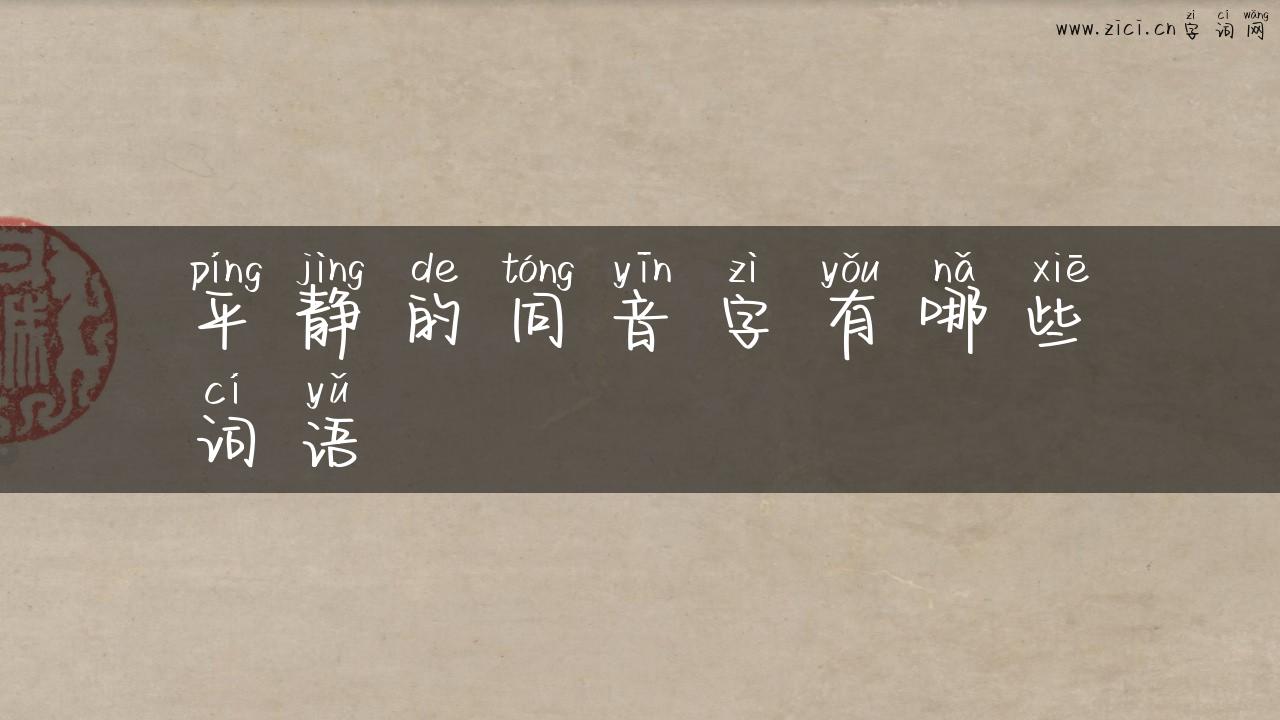 zì cí wǎng
www.zici.cn 字词网
píng jìng de tóng yīn zì yǒu nǎ xiē
平静的同音字有哪些
cí yǔ
词语